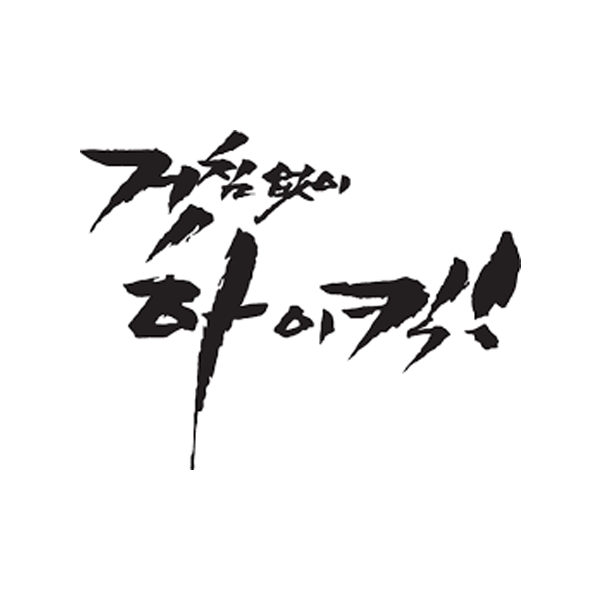 거침없이
하이킥!